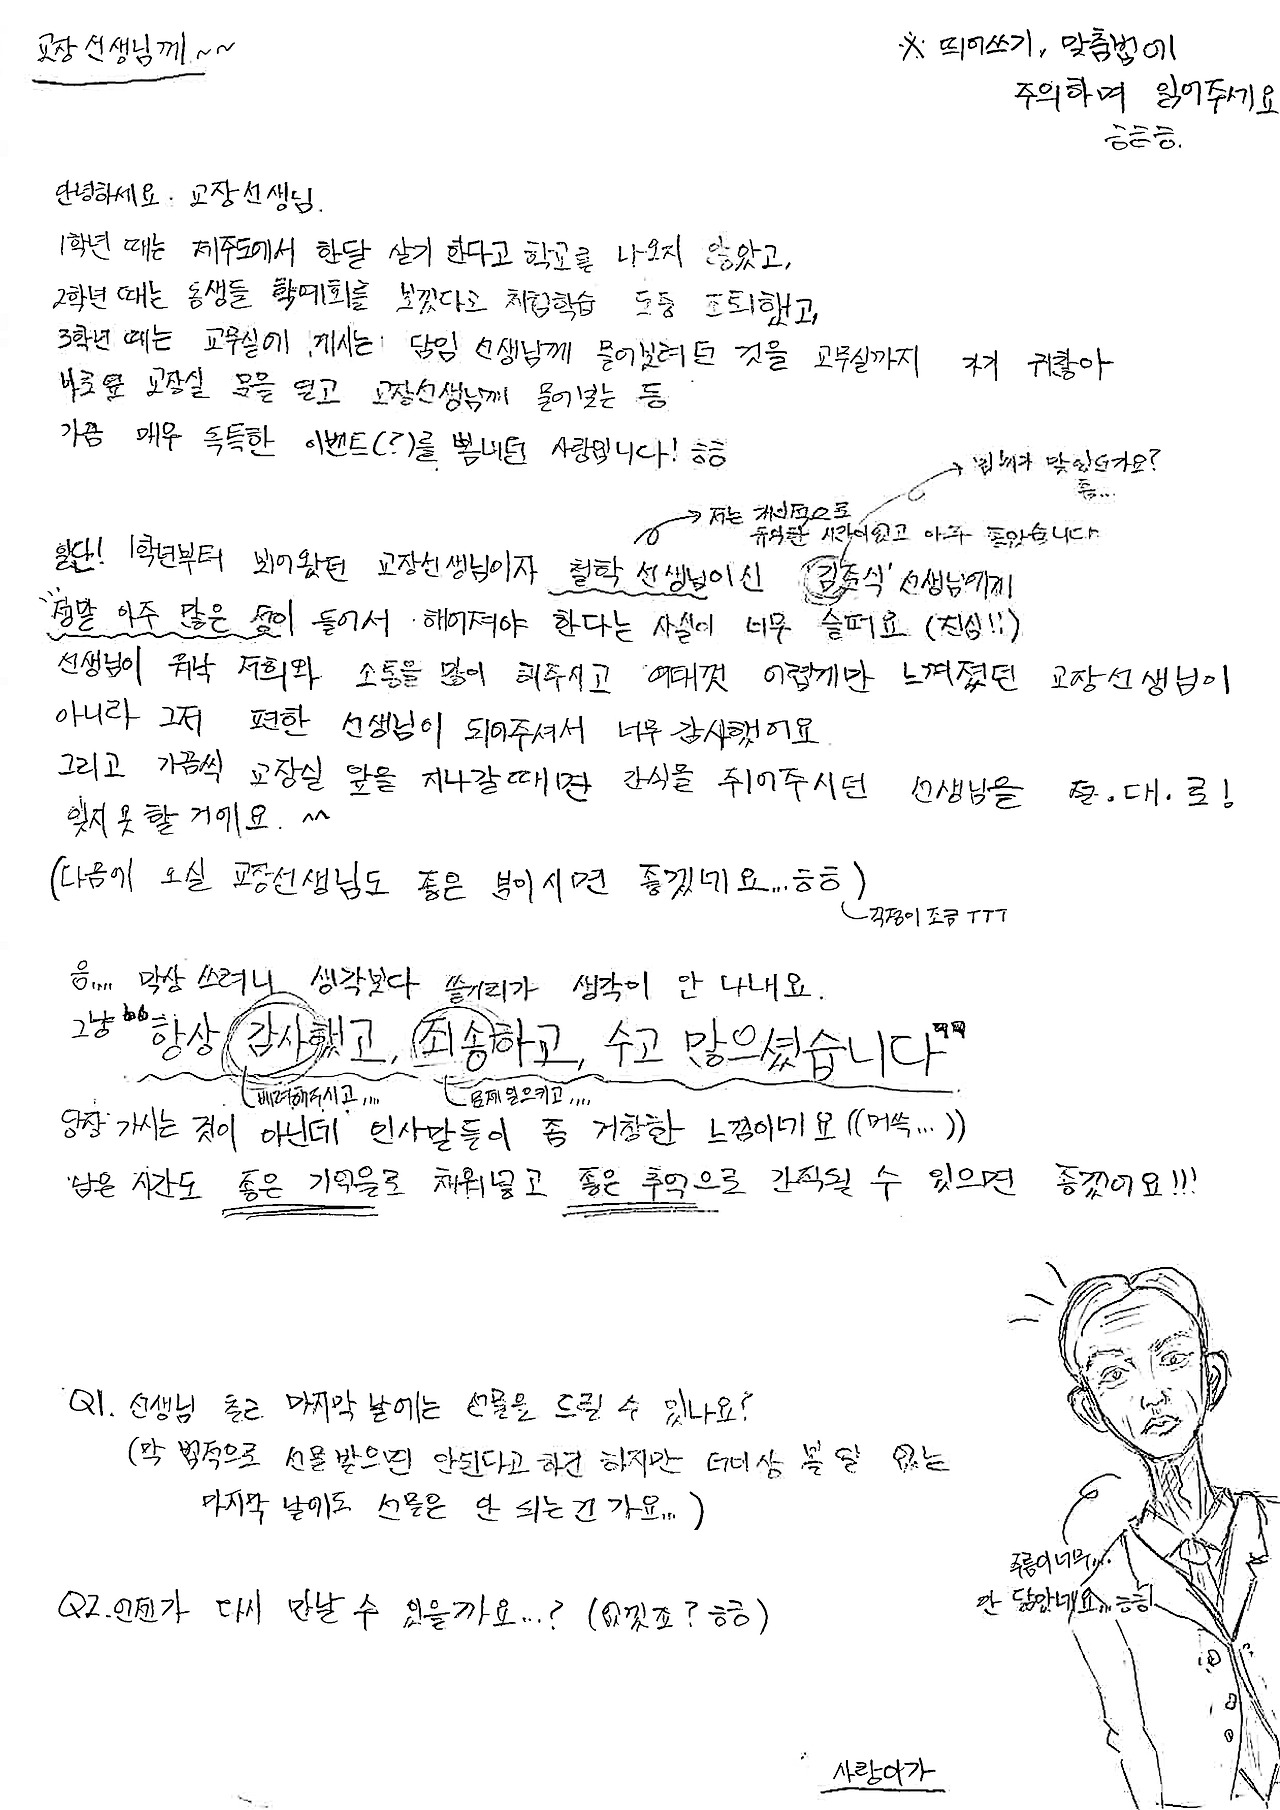 교장선생님께~~
※ 띄어쓰기, 맞춤법에
주의하며 읽어주세요
흐흐흐.
안녕하세요. 교장선생님.
1학년 때는 제주도에서 한달 살기 한다고 학교를 나오지 않았고,
2학년 때는 동생들 학예회를 보겠다고 체험학습 도중 조퇴했고,
3학년 때는 교무실에 계시는 담임 선생님께 물어보려던 것을 교무실까지 가기 귀찮아
바로 옆 교장실 문을 열고 교장선생님께 물어보는 등
가끔 매우 독특한 이벤트(?)를 뽐내던 사랑입니다! ㅎㅎ
맞있던가요?
흠...
→ 저는 개인적으로
유익한 시간이었고 아주 좋았습니다
일단! 1학년부터 봬어왔던 교장선생님이자 철학 선생님이신 '김준식' 선생님에게
정말 아주 많은 정이 들어서 헤어져야 한다는 사실이 너무 슬퍼요 (진심!!)
선생님이 워낙 저희와 소통을 많이 해주시고 여태껏 어렵게만 느껴졌던 교장선생님이
아니라 그저 편한 선생님이 되어주셔서 너무 감사했어요
그리고 가끔씩 교장실 앞을 지나갈때면 간식을 쥐어주시던 선생님을 절.대.로!
잊지 못할 거에요. ^^
(다음에 오실 교장선생님도 좋은 분이시면 좋겠네요...ㅎㅎ)
걱정이 조금 TTT
음.... 막상 쓰려니 생각보다 쓸거리가 생각이 안 나내요.
그냥 "항상 감사했고, 죄송하고, 수고 많으셨습니다"
배려해주시고....
문제 일으키고....
당장 가시는 것이 아닌데 인사말들이 좀 거창한 느낌이네요 ((머쓱...))
남은 시간도 좋은 기억들로 채워넣고 좋은 추억으로 간직될 수 있으면 좋겠어요!!!
Q1. 선생님 출근 마지막 날에는 선물을 드릴 수 있나요?
(막 법적으로 선물 받으면 안된다고 하긴 하지만 더이상 볼 일 없는
마지막 날에도 선물은 안 되는건가요...)
Q2. 언젠가 다시 만날 수 있을까요...? (있겠죠? ㅎㅎ)
주름이 너무...
안 닮았네요...ㅎㅎ
사랑이가